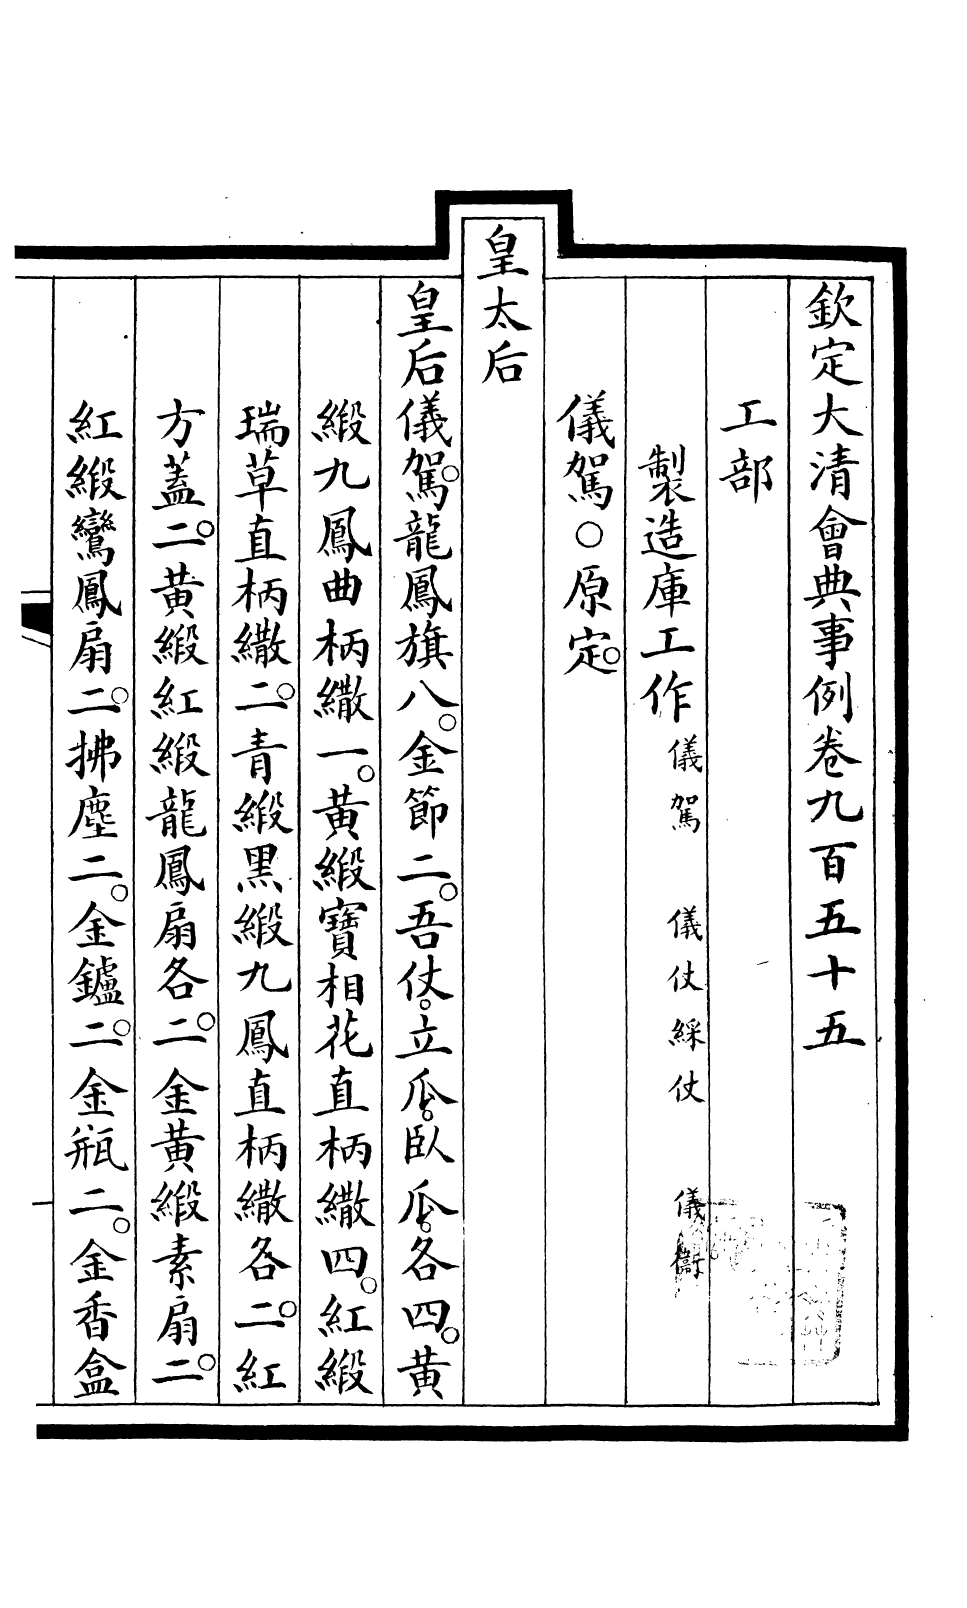 欽定大清會典事例卷九百五十五
工部
製造庫工作 儀駕 儀仗綵仗 儀衞
儀駕○原定。
皇太后
皇后儀駕。龍鳳旗八。金節二。吾仗。立瓜。臥瓜。各四。黃
緞九鳳曲柄繖一。黃緞寶相花直柄繖四。紅緞
瑞草直柄繖二。青緞黑緞九鳳直柄繖各二。紅
方蓋二。黃緞紅緞龍鳳扇各二。金黃緞素扇二。
紅緞鸞鳳扇二。拂塵二。金鑪二。金瓶二。金香盒